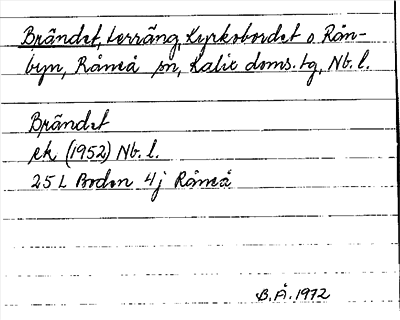 Brändet, terräng, Kyrkobordet o. Rån-
byn, Råneå sn, Kalix doms. tg, Nb. l.
Brändet
ek (1952) Nb. l.
25 L Boden 4j Råneå
B. Å. 1972